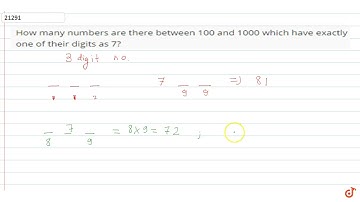 21291
How many numbers are there between 100 and 1000 which have exactly
one of their digits as 7?
3 digit no.
7 _ _ => 81
9 9
_ 7 _ = 8x9 = 72 ;
8 9